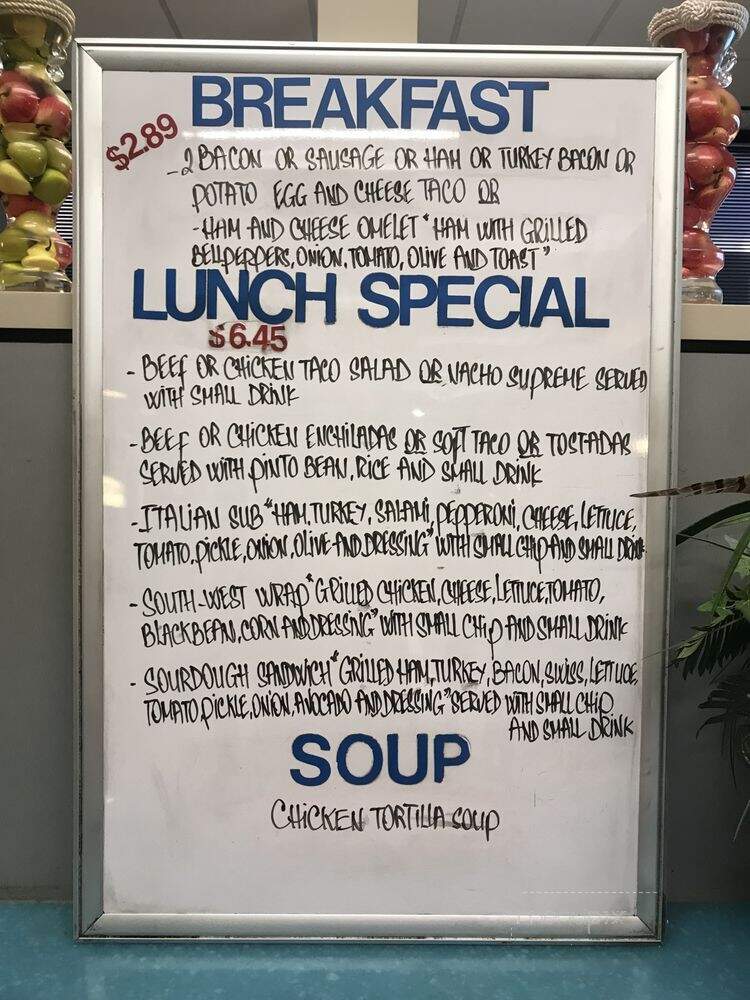 BREAKFAST
$2.89
-2 BACON OR SAUSAGE OR HAM OR TURKEY BACON OR
POTATO EGG AND CHEESE TACO OR
-HAM AND CHEESE OMELET "HAM WITH GRILLED
BELLPEPPERS, ONION, TOMATO, OLIVE AND TOAST"
LUNCH SPECIAL
$6.45
- BEEF OR CHICKEN TACO SALAD OR NACHO SUPREME SERVED
WITH SMALL DRINK
- BEEF OR CHICKEN ENCHILADAS OR SOFT TACO OR TOSTADAS
SERVED WITH PINTO BEAN, RICE AND SMALL DRINK
- ITALIAN SUB "HAM, TURKEY, SALAMI, PEPPERONI, CHEESE, LETTUCE,
TOMATO, PICKLE, ONION, OLIVE AND DRESSING" WITH SMALL CHIP AND SMALL DRINK
- SOUTH-WEST WRAP "GRILLED CHICKEN, CHEESE, LETTUCE, TOMATO,
BLACKBEAN, CORN AND DRESSING" WITH SMALL CHIP AND SMALL DRINK
- SOURDOUGH SANDWICH "GRILLED HAM, TURKEY, BACON, SWISS, LETTUCE,
TOMATO, PICKLE, ONION, AVOCADO AND DRESSING" SERVED WITH SMALL CHIP
AND SMALL DRINK
SOUP
CHICKEN TORTILLA SOUP